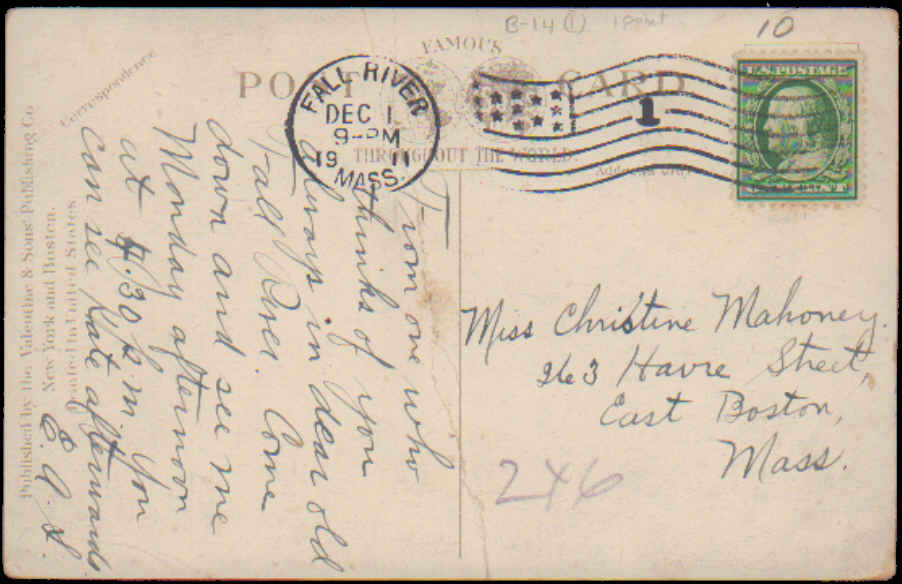 B-14 (1) 1 point
10
FAMOUS
POST CARD
THROUGHOUT THE WORLD.
Correspondence
Address Only
FALL RIVER
DEC 1
9-PM
19 11
MASS.
1
U.S. POSTAGE
Published by The Valentine & Sons' Publishing Co
New York and Boston.
Printed in United States
From one who
thinks of you
always in dear old
Fall River. Come
down and see me
Monday afternoon
at 4.30 p m. You
can see Kate afterwards
E. A. S.
Miss Christine Mahoney.
263 Havre Street,
East Boston,
Mass.
246